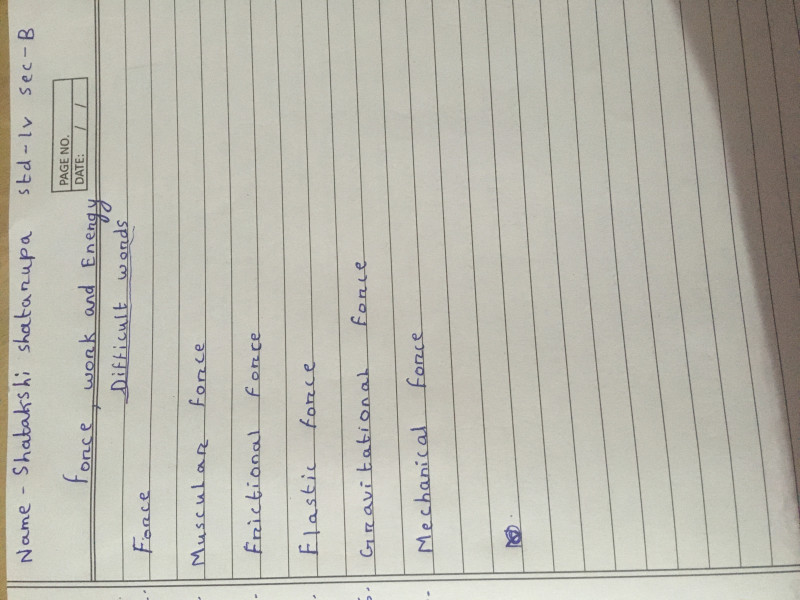 Name - Shatakshi shatarupa std - IV sec - B
PAGE NO.
DATE: / /
force, work and Energy
Difficult words
Force
Muscular force
Frictional force
Elastic force
Gravitational force
Mechanical force